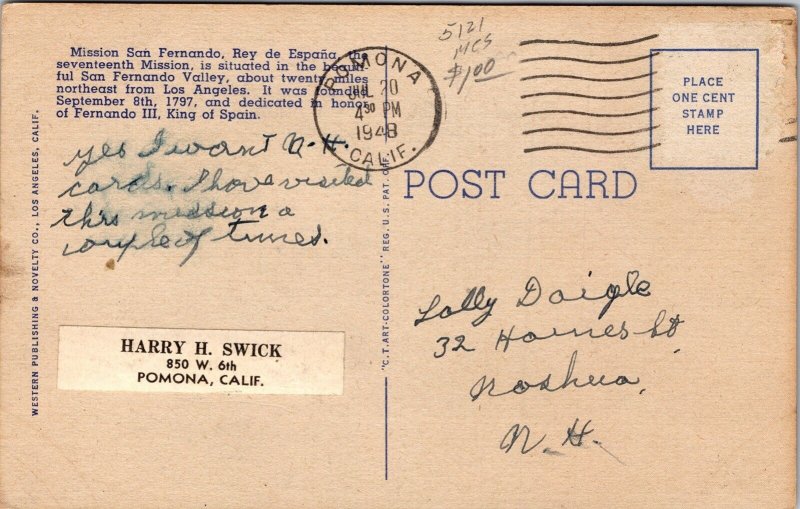 Mission San Fernando, Rey de España, the
seventeenth Mission, is situated in the beautiful
ful San Fernando Valley, about twenty miles
northeast from Los Angeles. It was founded
September 8th, 1797, and dedicated in honor
of Fernando III, King of Spain.
yes I want N.H.
cards. I have visited
this mission a
couple of times.
HARRY H. SWICK
850 W. 6th
POMONA, CALIF.
WESTERN PUBLISHING & NOVELTY CO., LOS ANGELES, CALIF.
"C.T. ART-COLORTONE" REG. U.S. PAT. OFF.
POMONA
JUL 20
4 30 PM
1948
CALIF.
5121
MCS
$1.00
PLACE
ONE CENT
STAMP
HERE
POST CARD
Lolly Daigle
32 Haines St
Nashua,
N.H.